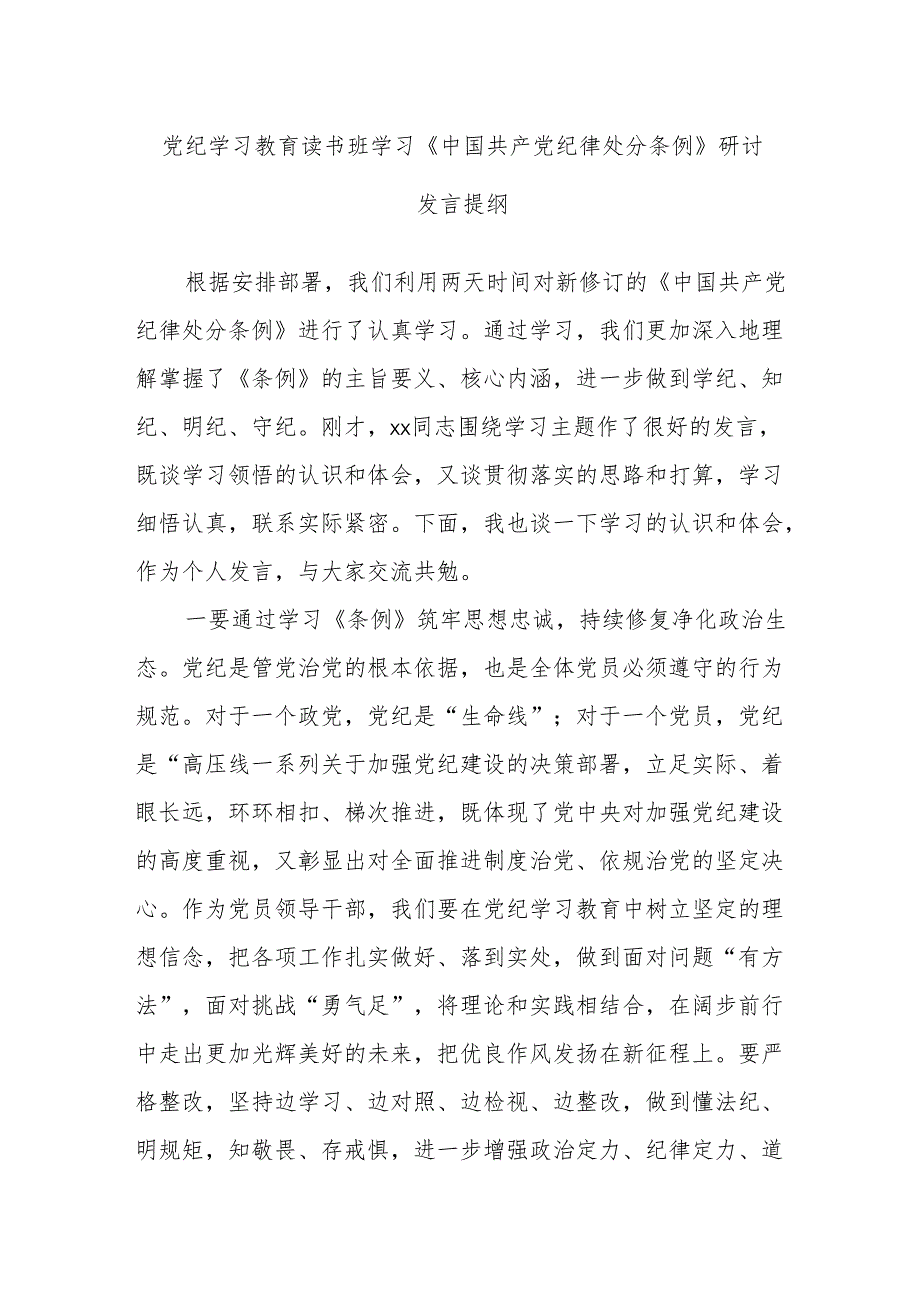 党纪学习教育读书班学习《中国共产党纪律处分条例》研讨
发言提纲
根据安排部署，我们利用两天时间对新修订的《中国共产党
纪律处分条例》进行了认真学习。通过学习，我们更加深入地理
解掌握了《条例》的主旨要义、核心内涵，进一步做到学纪、知
纪、明纪、守纪。刚才，xx同志围绕学习主题作了很好的发言，
既谈学习领悟的认识和体会，又谈贯彻落实的思路和打算，学习
细悟认真，联系实际紧密。下面，我也谈一下学习的认识和体会，
作为个人发言，与大家交流共勉。
一要通过学习《条例》筑牢思想忠诚，持续修复净化政治生
态。党纪是管党治党的根本依据，也是全体党员必须遵守的行为
规范。对于一个政党，党纪是“生命线”；对于一个党员，党纪
是“高压线一系列关于加强党纪建设的决策部署，立足实际、着
眼长远，环环相扣、梯次推进，既体现了党中央对加强党纪建设
的高度重视，又彰显出对全面推进制度治党、依规治党的坚定决
心。作为党员领导干部，我们要在党纪学习教育中树立坚定的理
想信念，把各项工作扎实做好、落到实处，做到面对问题“有方
法”，面对挑战“勇气足”，将理论和实践相结合，在阔步前行
中走出更加光辉美好的未来，把优良作风发扬在新征程上。要严
格整改，坚持边学习、边对照、边检视、边整改，做到懂法纪、
明规矩，知敬畏、存戒惧，进一步增强政治定力、纪律定力、道